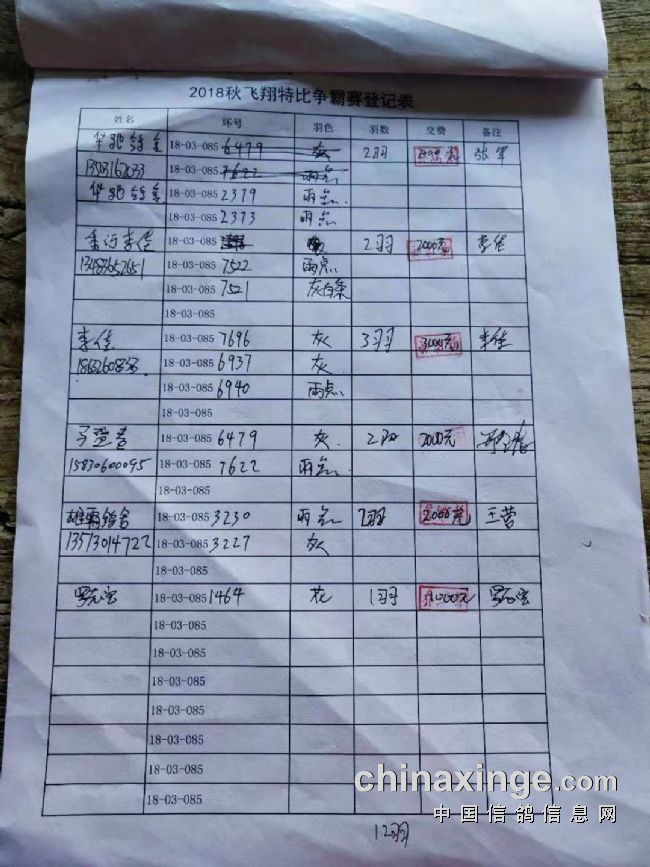 2018秋飞翔特比争霸赛登记表
姓名 环号 羽色 羽数 交费 备注
18-03-085 6479 灰 2羽 2000元 张军
18-03-085 7622 雨点
18-03-085 2379 雨点
18-03-085 2373 雨点
18-03-085 2羽 2000元 李佳
13483652651 18-03-085 7522 雨点
18-03-085 7521 灰白条
18-03-085
李佳 18-03-085 7696 灰 3羽 3000元 李佳
18-03-085 6937 灰
18-03-085 6940 雨点
18-03-085
18-03-085 6479 灰 2羽 2000元
15830600095 18-03-085 7622 雨点
18-03-085
雄霸鸽舍 18-03-085 3230 雨点 2羽 2000元 王营
13513014722 18-03-085 3227 灰
18-03-085
18-03-085 1464 花 1羽 1000元
18-03-085
18-03-085
18-03-085
18-03-085
18-03-085
18-03-085
18-03-085
12羽
chinaxinge.com
中国信鸽信息网